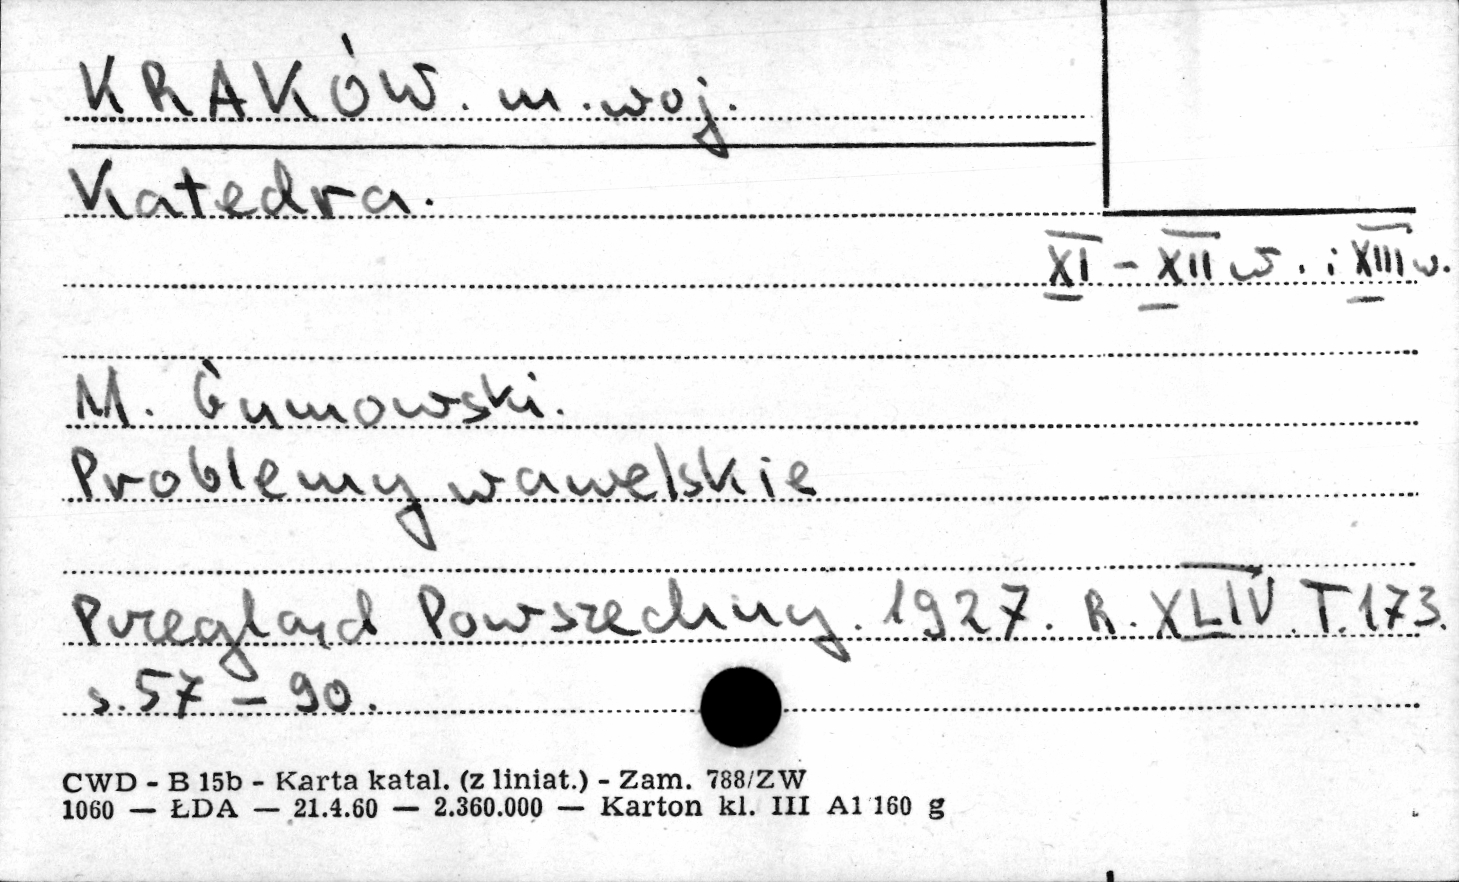 KRAKÓW. m. woj.
Katedra.
XI - XII w. i XIII w.
M. Gumowski.
Problemy wawelskie
Przegląd Powszechny. 1927. R. XLIV. T. 173.
s. 57 - 90.
CWD - B 15b - Karta katal. (z liniat.) - Zam. 788/ZW
1060 — ŁDA — 21.4.60 — 2.360.000 — Karton kl. III A1 160 g